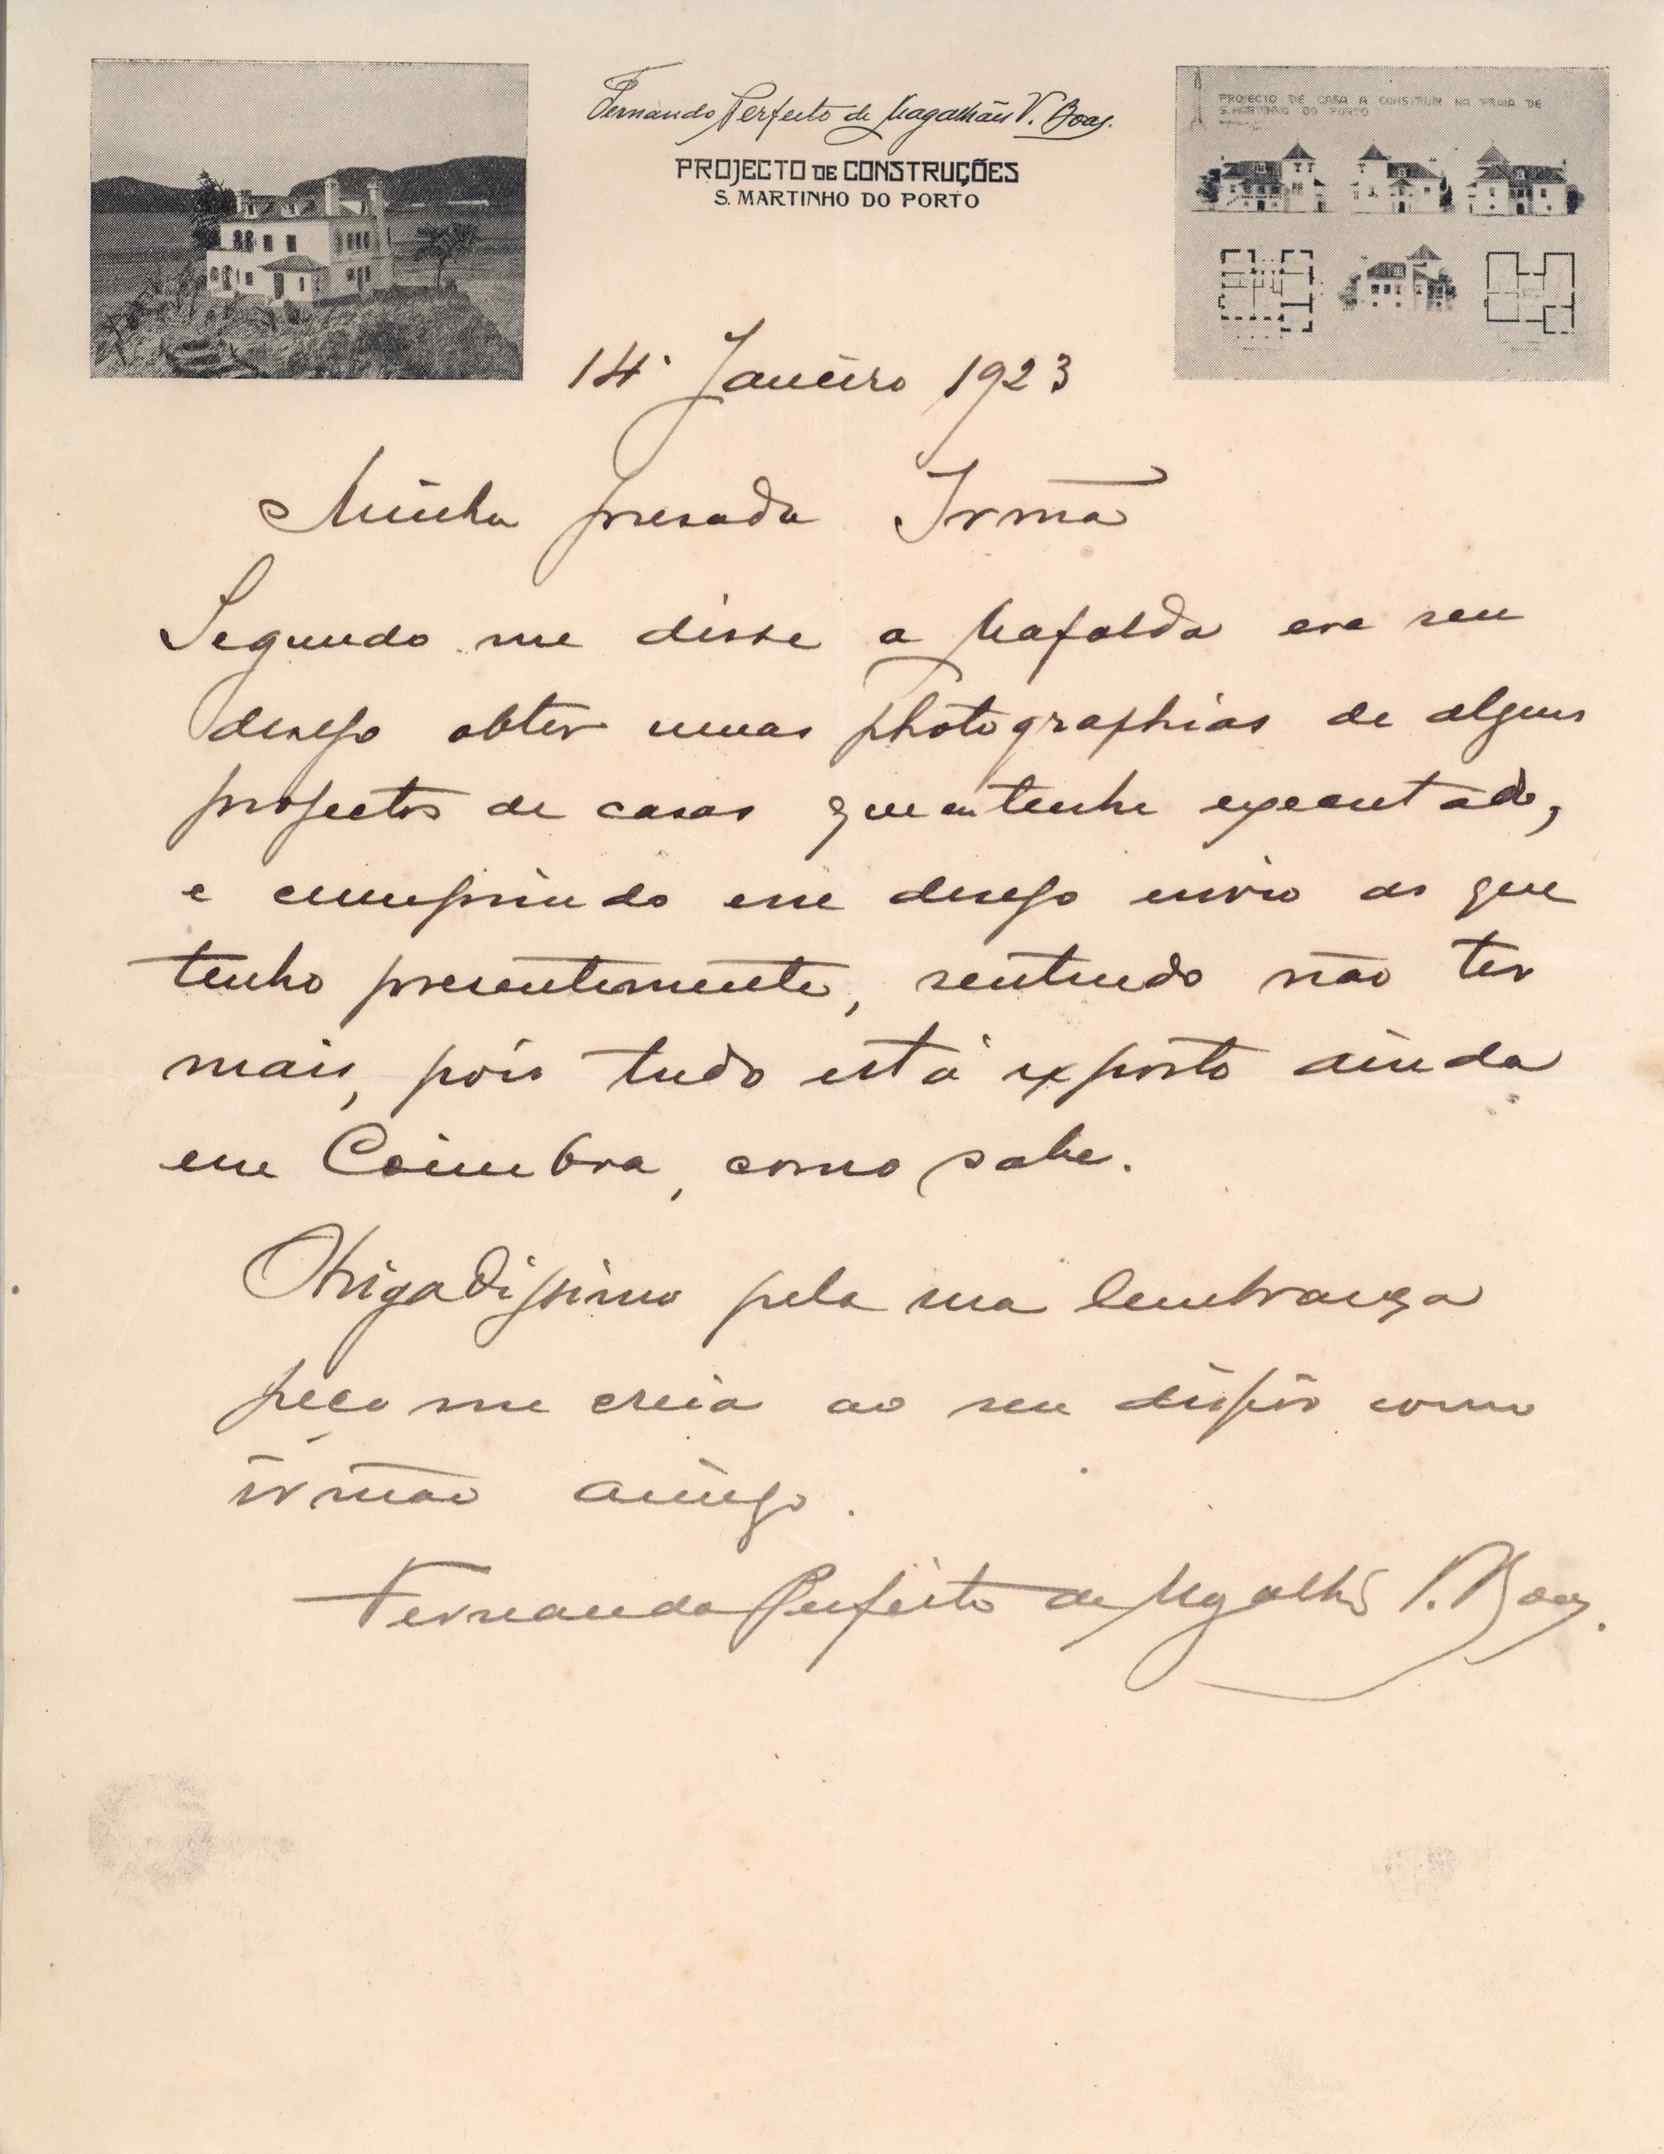 Fernando Perfeito de Magalhães V. Boas.
PROJECTO DE CONSTRUÇÕES
S. MARTINHO DO PORTO
PROJECTO DE CASA A CONSTRUIR NA PRAIA DE
S. MARTINHO DO PORTO
14 Janeiro 1923
Minha presada Irmã
Segundo me disse a Mafalda era seu
desejo obter umas photographias de alguns
projectos de casas que eu tenho executado,
e cumprindo esse desejo envio as que
tenho presentemente, sentindo não ter
mais, pois tudo está exposto ainda
em Coimbra, como sabe.
Obrigadissimo pela sua lembrança
peço me creia ao seu dispôr como
irmão amigo.
Fernando Perfeito de Magalhães V. Boas.